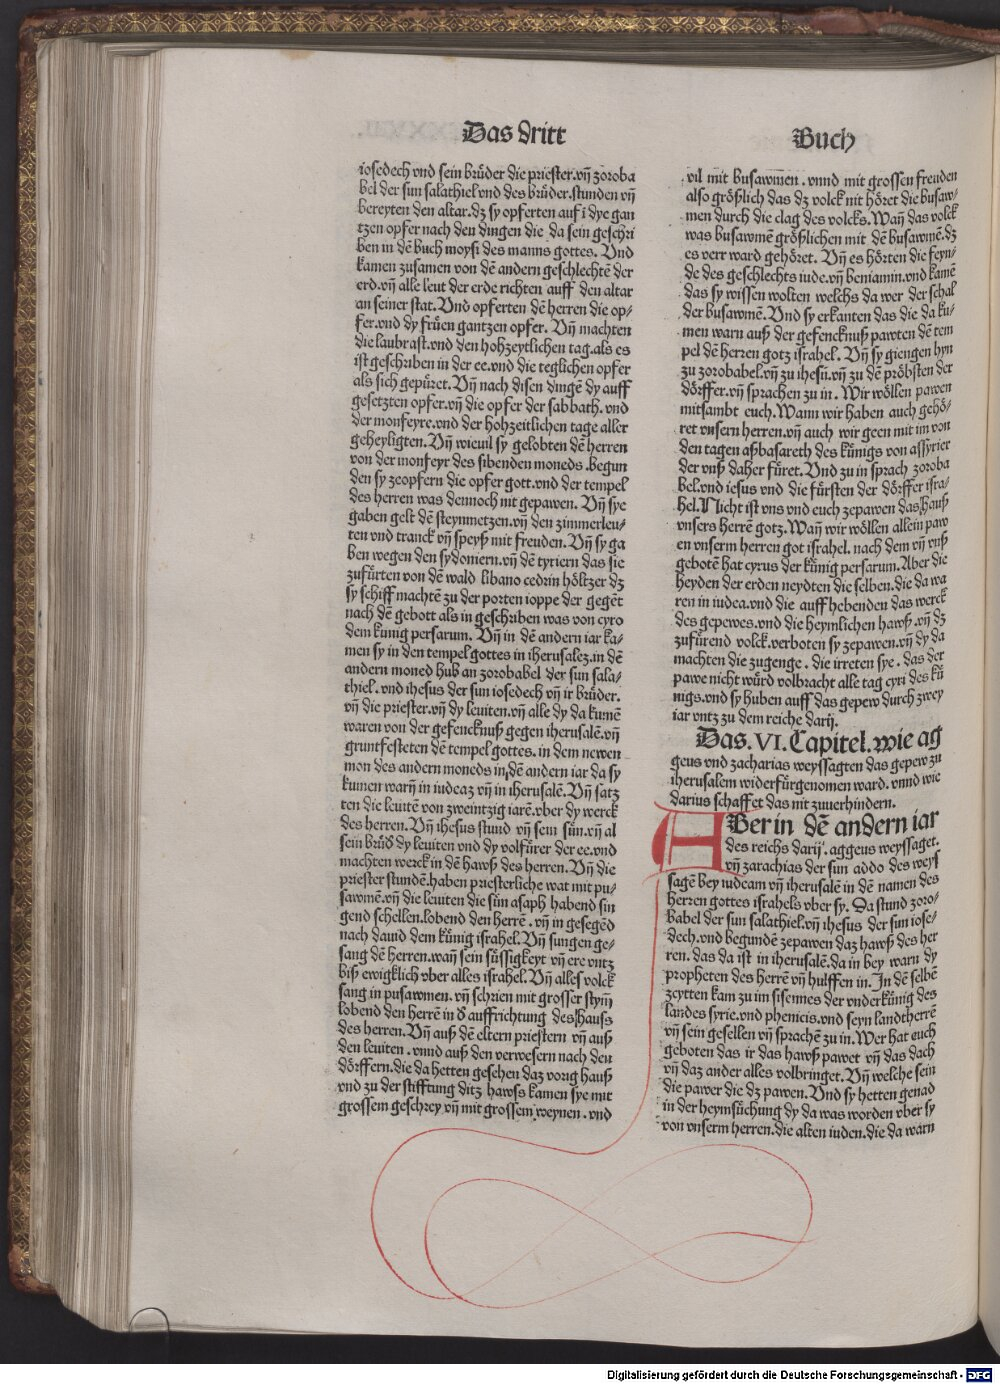 Das dritt
Buch
iosedech vnd sein brůder die priester.vñ zoroba
bel der sun salathiel vnd des brůder.stunden vñ
bereyten den altar.dz sy opferten auf ī dye gan
tzen opfer nach den dingen die da sein geschri
ben in dē buch moysi des manns gottes. Vnd
kamen zusamen von dē andern geschlechtē der
erd.vñ alle leut der erde richten auff den altar
an seiner stat. Vnd opferten dē herren die op⸗
fer.vnd dy frůen gantzen opfer. Vñ machten
die laubrast.vnd den hohzeytlichen tag.als es
ist geschriben in der ee.vnd die teglichen opfer
als sich gepüret. Vñ nach disen dingē dy auff
gesetzten opfer.vñ die opfer der sabbath. vnd
der monfeyre.vnd der hohzeitlichen tage aller
geheyligten. Vñ wieuil sy gelobten dē herren
von der monfeyr des sibenden moneds .begun
den sy zeopfern die opfer gott.vnd der tempel
des herren was dennoch nit gepawen. Vñ sye
gaben gelt dē steynmetzen.vñ den zimmerleu⸗
ten vnd tranck vñ speyß mit freuden. Vñ sy ga
ben wegen den sydoniern.vñ dē tyriern das sie
zufürten von dē wald libano cedrin höltzer dz
sy schiff machtē zu der porten ioppe der gegēt
nach dē gebott als in geschriben was von cyro
dem kunig persarum. Vñ in dē andern iar ka⸗
men sy in den tempel gottes in iherusalez.in dē
andern moned hub an zorobabel der sun sala⸗
thiel. vnd ihesus der sun iosedech vñ ir brůder.
vñ die priester.vñ dy leuiten.vñ alle dy da kumē
waren von der gefencknuß gegen iherusalē.vñ
gruntfesteten dē tempel gottes. in dem newen
mon des andern moneds in dē andern iar da sy
kumen warñ in iudeaz vñ in iherusalē. Vñ satz
ten die leuitē von zweintzig iarē.vber dy werck
des herren. Vñ ihesus stund vñ sein sün.vñ al
sein brůd dy leuiten vnd dy volfürer der ee.vnd
machten werck in dē hawß des herren. Vñ die
priester stundē.haben priesterliche wat mit pu⸗
sawmē.vñ die leuiten die sün asaph habend sin
gend schellen.lobend den herrē . vñ in gesegēd
nach dauid dem künig israhel. Vñ sungen ge⸗
sang dē herren.wañ sein süssigkeyt vñ ere vntz
biß ewigklich vber alles israhel. Vñ alles volck
sang in pusawmen. vñ schrien mit grosser stym̄
lobend den herrē in d auffrichtung des hauss
des herren. Vñ auß dē eltern priestern vñ auß
den leuiten . vnnd auß den verwesern nach den
dörffern.die da hetten gesehen daz vorig hauß
vnd zu der stifftung ditz hawss kamen sye mit
grossem geschrey vñ mit grossem weynen . vnd
vil mit busawmen . vnnd mit grossen freuden
also größlich das dz volck nit höret die busaw⸗
men durch die clag des volcks. Wañ das volck
was busawmē größlichen mit dē busawmē.dz
es verr ward gehöret. Vñ es hörten die feyn⸗
de des geschlechts iude.vñ beniamin.vnd kamē
das sy wissen wolten welchs da wer der schal
der busawmē. Vnd sy erkanten das die da ku⸗
men warn auß der gefencknuß pawten dē tem
pel dē herren gotz israhel. Vñ sy giengen hyn
zu zorobabel.vñ zu ihesū.vñ zu dē pröbsten der
dörffer.vñ sprachen zu in . Wir wöllen pawen
mitsambt euch. Wann wir haben auch gehö⸗
ret vnsern herren.vñ auch wir geen mit im von
den tagen aßbasareth des künigs von assyrier
der vnß daher füret. Vnd zu in sprach zoroba
bel.vnd iesus vnd die fürsten der dörffer isra⸗
hel. Nicht ist vns vnd euch zepawen das hauß
vnsers herrē gotz. Wañ wir wöllen allein paw
en vnserm herren got israhel. nach dem vñ vnß
gebotē hat cyrus der künig persarum. Aber die
heyden der erden neydten die selben.die da wa
ren in iudea.vnd die auff hebenden das werck
des gepewes.vnd die heymlichen hawß.vñ dz
zufürend volck.verboten sy zepawen.vñ dy da
machten die zugenge . die irreten sye . das der
pawe nicht würd volbracht alle tag cyri des kü
nigs.vnd sy huben auff das gepew durch zwey
iar vntz zu dem reiche darij.
Das. VI. Capitel. wie ag
geus vnd zacharias weyssagten das gepew zu
iherusalem widerfürgenomen ward. vnnd wie
darius schaffet das nit zuuerhindern.
ABer in dē andern iar
des reichs darij. aggeus weyssaget.
vñ zarachias der sun addo des weys
sagē bey iudeam vñ iherusalē in dē namen des
herren gottes israhels vber sy. Da stund zoro⸗
babel der sun salathiel.vñ ihesus der sun iose⸗
dech.vnd begundē zepawen daz hawß des her
ren. das da ist in iherusalē.da in bey warn dy
propheten des herrē vñ hulffen in. In dē selbē
zeytten kam zu im sisennes der vnderkünig des
landes syrie.vnd phenicis.vnd seyn landtherrē
vñ sein gesellen vñ sprachē zu in. Wer hat euch
geboten das ir das hawß pawet vñ das dach
vñ daz ander alles volbringet. Vñ welche sein
die pawer die dz pawen. Vnd sy hetten genad
in der heymsüchung dy da was worden vber sy
von vnserm herren.die alten iuden.die da warn
Digitalisierung gefördert durch die Deutsche Forschungsgemeinschaft - DFG